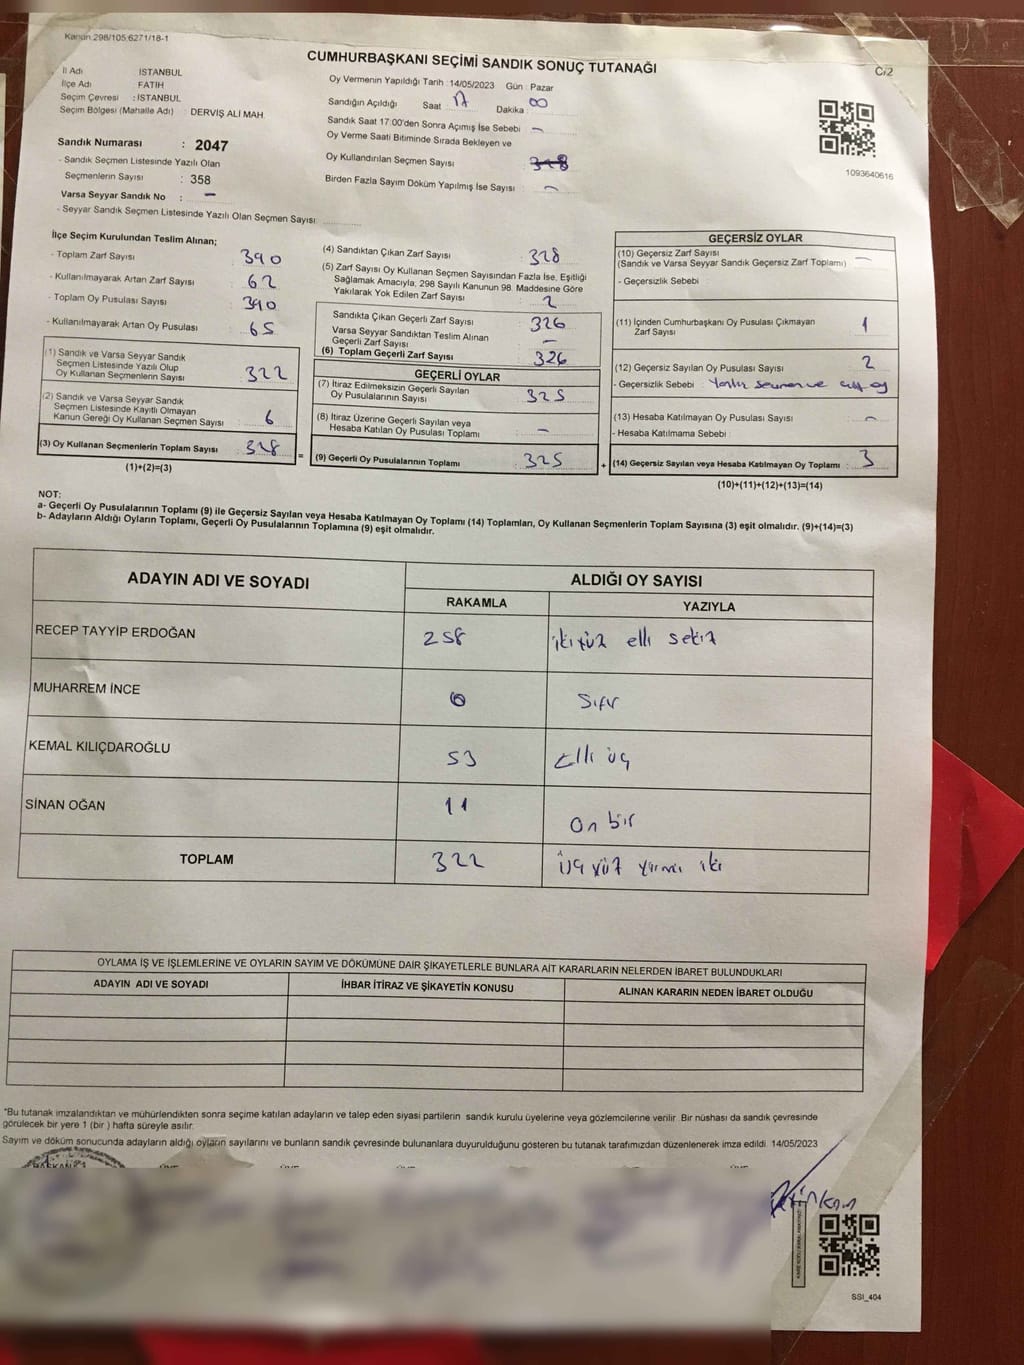 Kanun 298/105,6271/18-1
CUMHURBAŞKANI SEÇİMİ SANDIK SONUÇ TUTANAĞI
C/2
İl Adı İSTANBUL
İlçe Adı FATİH
Seçim Çevresi : İSTANBUL
Seçim Bölgesi (Mahalle Adı) DERVİŞ ALİ MAH.
Sandık Numarası : 2047
- Sandık Seçmen Listesinde Yazılı Olan
Seçmenlerin Sayısı : 358
Varsa Seyyar Sandık No : –
- Seyyar Sandık Seçmen Listesinde Yazılı Olan Seçmen Sayısı:
Oy Vermenin Yapıldığı Tarih :14/05/2023 Gün : Pazar
Sandığın Açıldığı Saat : 17 Dakika : 00
Sandık Saat 17:00'den Sonra Açımış İse Sebebi –
Oy Verme Saati Bitiminde Sırada Bekleyen ve
Oy Kullandırılan Seçmen Sayısı
Birden Fazla Sayım Döküm Yapılmış İse Sayısı : –
1093640616
İlçe Seçim Kurulundan Teslim Alınan;
- Toplam Zarf Sayısı 390
- Kullanılmayarak Artan Zarf Sayısı 62
- Toplam Oy Pusulası Sayısı 390
- Kullanılmayarak Artan Oy Pusulası 65
(1) Sandık ve Varsa Seyyar Sandık
Seçmen Listesinde Yazılı Olup
Oy Kullanan Seçmenlerin Sayısı 322
(2) Sandık ve Varsa Seyyar Sandık
Seçmen Listesinde Kayıtlı Olmayan
Kanun Gereği Oy Kullanan Seçmen Sayısı 6
(3) Oy Kullanan Seçmenlerin Toplam Sayısı 328
(1)+(2)=(3)
(4) Sandıktan Çıkan Zarf Sayısı 328
(5) Zarf Sayısı Oy Kullanan Seçmen Sayısından Fazla İse, Eşitliği
Sağlamak Amacıyla, 298 Sayılı Kanunun 98. Maddesine Göre
Yakılarak Yok Edilen Zarf Sayısı 2
Sandıkta Çıkan Geçerli Zarf Sayısı 326
Varsa Seyyar Sandıktan Teslim Alınan
Geçerli Zarf Sayısı –
(6) Toplam Geçerli Zarf Sayısı 326
GEÇERLİ OYLAR
(7) İtiraz Edilmeksizin Geçerli Sayılan
Oy Pusulalarının Sayısı 325
(8) İtiraz Üzerine Geçerli Sayılan veya
Hesaba Katılan Oy Pusulası Toplamı –
= (9) Geçerli Oy Pusulalarının Toplamı 325
GEÇERSİZ OYLAR
(10) Geçersiz Zarf Sayısı –
(Sandık ve Varsa Seyyar Sandık Geçersiz Zarf Toplamı)
- Geçersizlik Sebebi :
(11) İçinden Cumhurbaşkanı Oy Pusulası Çıkmayan
Zarf Sayısı 1
(12) Geçersiz Sayılan Oy Pusulası Sayısı 2
- Geçersizlik Sebebi :
(13) Hesaba Katılmayan Oy Pusulası Sayısı –
- Hesaba Katılmama Sebebi :
+ (14) Geçersiz Sayılan veya Hesaba Katılmayan Oy Toplamı : 3
(10)+(11)+(12)+(13)=(14)
NOT:
a- Geçerli Oy Pusulalarının Toplamı (9) ile Geçersiz Sayılan veya Hesaba Katılmayan Oy Toplamı (14) Toplamları, Oy Kullanan Seçmenlerin Toplam Sayısına (3) eşit olmalıdır. (9)+(14)=(3)
b- Adayların Aldığı Oyların Toplamı, Geçerli Oy Pusulalarının Toplamına (9) eşit olmalıdır.
ADAYIN ADI VE SOYADI ALDIĞI OY SAYISI
RAKAMLA YAZIYLA
RECEP TAYYİP ERDOĞAN 258 iki yüz elli sekiz
MUHARREM İNCE 0 Sıfır
KEMAL KILIÇDAROĞLU 53 Elli üç
SİNAN OĞAN 11 On bir
TOPLAM 322 üç yüz yirmi iki
OYLAMA İŞ VE İŞLEMLERİNE VE OYLARIN SAYIM VE DÖKÜMÜNE DAİR ŞİKAYETLERLE BUNLARA AİT KARARLARIN NELERDEN İBARET BULUNDUKLARI
ADAYIN ADI VE SOYADI İHBAR İTİRAZ VE ŞİKAYETİN KONUSU ALINAN KARARIN NEDEN İBARET OLDUĞU
*Bu tutanak imzalandıktan ve mühürlendikten sonra seçime katılan adayların ve talep eden siyasi partilerin sandık kurulu üyelerine veya gözlemcilerine verilir. Bir nüshası da sandık çevresinde
görülecek bir yere 1 (bir ) hafta süreyle asılır.
Sayım ve döküm sonucunda adayların aldığı oyların sayılarını ve bunların sandık çevresinde bulunanlara duyurulduğunu gösteren bu tutanak tarafımızdan düzenlenerek imza edildi. 14/05/2023
SSI_404